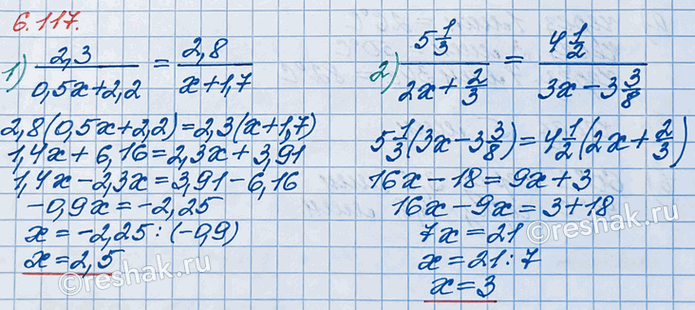 6.117.
1) 2,3/(0,5x+2,2) = 2,8/(x+1,7)
2,8(0,5x+2,2)=2,3(x+1,7)
1,4x+6,16=2,3x+3,91
1,4x-2,3x=3,91-6,16
-0,9x=-2,25
x=-2,25:(-0,9)
x=2,5
2) 5 1/3/(2x+2/3) = 4 1/2/(3x-3 3/8)
5 1/3(3x-3 3/8)=4 1/2(2x+2/3)
16x-18=9x+3
16x-9x=3+18
7x=21
x=21:7
x=3
©reshak.ru
©reshak.ru